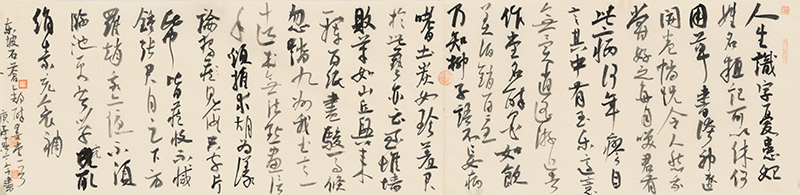 人生識字憂患始
姓名粗記可以休何
用草書誇神速
開卷惝怳令人愁我
嘗好之每自笑君有
此病何年瘳自
言其中有至樂適意
無異逍遙遊近者
作堂名醉墨如飲
美酒銷百憂
乃知柳子語不妄病
嗜土炭如珍羞君
於此藝亦云至堆墻
敗筆如山丘興來
一揮百紙盡駿馬倏
忽踏九州我書意
造本無法點畫信
手煩推求胡為議
論獨見假隻字片
紙皆藏收不減
鍾張君自足下方
羅趙我亦優不須
臨池更苦學完取
絹素充衾裯
東坡石蒼舒醉墨堂
庚子書